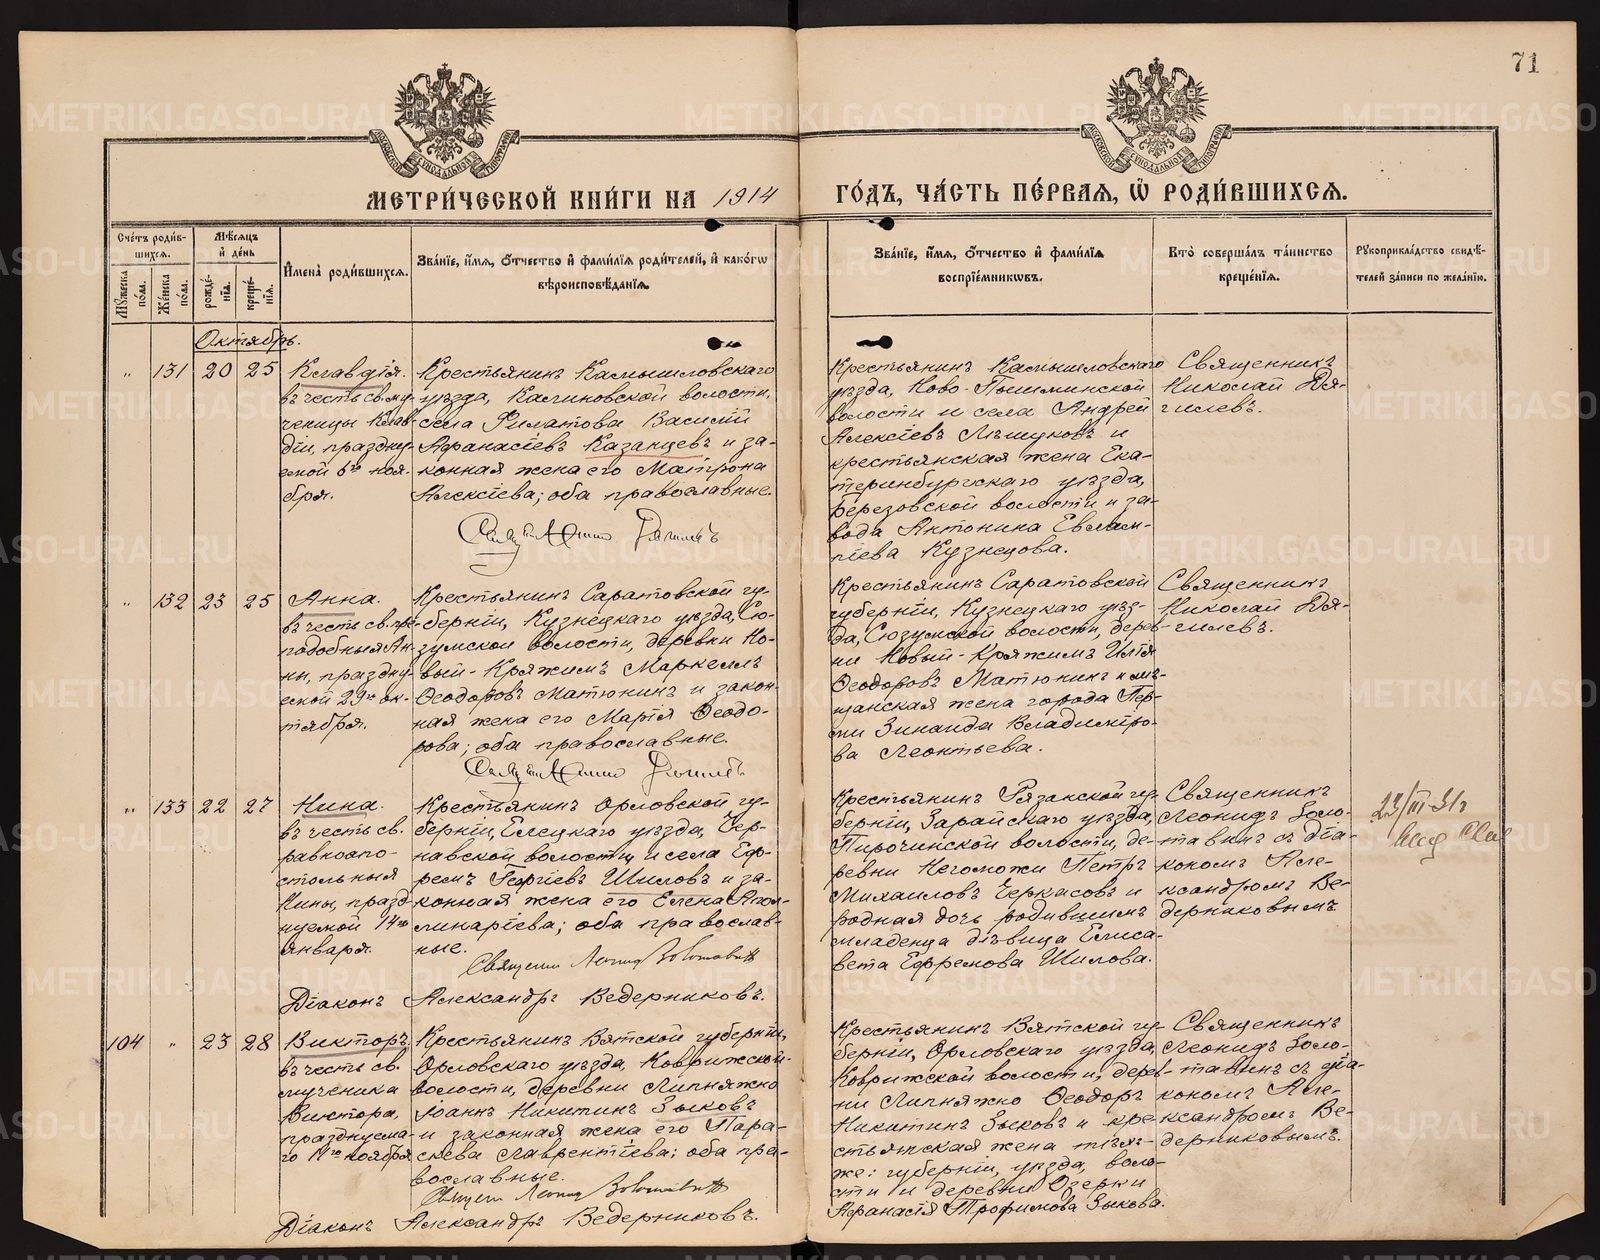 71
МЕТРИ́ЧЕСКОЙ КНИ́ГИ НА 1914 ГО́ДЪ, ЧА́СТЬ ПЕ́РВАЯ, Ѡ РОДИ́ВШИХСЯ.
Сче́тъ роди́в-
шихся.
Мꙋ́жеска по́ла.
Же́нска по́ла.
Мѣ́сяцъ и҆ де́нь
рожде́-
нїя.
креще́-
нїя.
И҆мена̀ роди́вшихся.
Зва́нїе, и҆́мя, ѻ҆́тчество и҆ фами́лїя роди́телей, и҆ како́гѡ
вѣроисповѣ́данїя.
Зва́нїе, и҆́мя, ѻ҆́тчество и҆ фами́лїя
воспрїе́мникѡвъ.
Кто̀ соверша́лъ та́инство
креще́нїя.
Рꙋкоприкла́дство свидѣ́-
телей за́писи по жела́нїю.
Октябрь.
„ 131 20 25
Клавдія.
въ честь св. му-
ченицы Клав-
діи, праздну-
емой 6го ноя-
бря.
Крестьянинъ Камышловскаго
уѣзда, Калиновской волости,
села Филатова Василій
Афанасіевъ Казанцевъ и за-
конная жена его Матрона
Алексіева; оба православные.
Крестьянинъ Камышловскаго
уѣзда, Ново-Пышминской
волости и села Андрей
Алексіевъ Лѣшуковъ и
крестьянская жена Ека-
теринбургскаго уѣзда,
Березовской волости и за-
вода Антонина Евлам-
піева Кузнецова.
Священникъ
Николай Дя-
гилевъ.
„ 132 23 25
Анна.
въ честь св. пре-
подобныя Ан-
ны, праздну-
емой 29го ок-
тября.
Крестьянинъ Саратовской гу-
берніи, Кузнецкаго уѣзда, Сю-
зумской волости, деревни Но-
вый-Кряжимъ Маркеллъ
Ѳеодоровъ Матюнинъ и закон-
ная жена его Марія Ѳеодо-
рова; оба православные.
Крестьянинъ Саратовской
губерніи, Кузнецкаго уѣз-
да, Сюзумской волости, дерев-
ни Новый-Кряжимъ Илія
Ѳеодоровъ Матюнинъ и мѣ-
щанская жена города Пер-
ми Зинаида Владиміро-
ва Леонтьева.
Священникъ
Николай Дя-
гилевъ.
„ 133 22 27
Нина.
въ честь св.
равноапо-
стольныя
Нины, празд-
нуемой 14го
января.
Крестьянинъ Орловской гу-
берніи, Елецкаго уѣзда, Чер-
навской волости и села Еф-
ремъ Георгіевъ Шиловъ и за-
конная жена его Елена Апол-
линаріева; оба православ-
ные.
Священникъ Леонид Золотавинъ
Діаконъ Александръ Ведерниковъ.
Крестьянинъ Рязанской гу-
берніи, Зарайскаго уѣзда,
Пирочинской волости, де-
ревни Негоможи Петръ
Михаиловъ Черкасовъ и
родная дочь родившимъ
младенца дѣвица Елиса-
вета Ефремова Шилова.
Священникъ
Леонидъ Золо-
тавинъ съ діа-
кономъ Але-
ксандромъ Ве-
дерниковымъ
23/III-31г
104 „ 23 28
Викторъ,
въ честь св.
мученика
Виктора,
праздуема-
го 11го ноября
Крестьянинъ Вятской губерніи,
Орловскаго уѣзда, Коврижской
волости, деревни Липняжно
Іоаннъ Никитинъ Зыковъ
и законная жена его Пара-
скева Лаврентіева; оба пра-
вославные.
Священ Леонид Золотавинъ
Діаконъ Александръ Ведерниковъ.
Крестьянинъ Вятской гу-
берніи, Орловскаго уѣзда,
Коврижской волости, дерев-
ни Липняжно Ѳеодоръ
Никитинъ Зыковъ и кре-
стьянская жена тѣхъ-
же: губерніи, уѣзда, воло-
сти и деревни Озерки
Афанасія Трофимова Зыкова.
Священникъ
Леонидъ Золо-
тавинъ съ діа-
кономъ Але-
ксандромъ Ве-
дерниковымъ.
METRIKI.GASO-URAL.RU